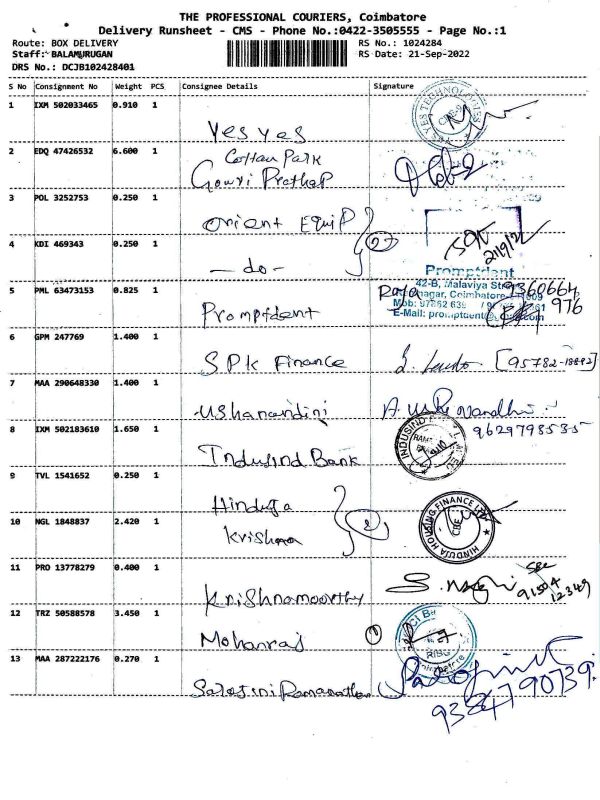 THE PROFESSIONAL COURIERS, Coimbatore
Delivery Runsheet - CMS - Phone No.:0422-3505555 - Page No.:1
Route: BOX DELIVERY RS No.: 1024284
Staff: BALAMURUGAN RS Date: 21-Sep-2022
DRS No.: DCJB102428401
S No Consignment No Weight PCS Consignee Details Signature
1 IXM 502033465 0.910 1
Yes Yes
2 EDQ 47426532 6.600 1
Cotton Park
Gowri Prathap
3 POL 3252753 0.250 1
Orient Equip
4 KDI 469343 0.250 1
- do -
21/9/22
Promptdent
5 PML 63473153 0.825 1 42-B, Malaviya
Raja 9360664
976
nagar, Coimbatore
Promptdent
6 GPM 247769 1.400 1
SPK Finance [95782-18892]
7 MAA 290648330 1.400 1
Ushanandini
8 IXM 502183610 1.650 1 9629798535
INDUSIND
Indusind Bank
9 TVL 1541652 0.250 1
Hinduja
10 NGL 1848837 2.420 1
Krishna
HINDUJA HOUSING FINANCE
CBE
11 PRO 13778279 0.400 1
Krishnamoorthy
91504
12349
12 TRZ 50588578 3.450 1
Mohanraj 1
13 MAA 287222176 0.270 1
Sarojini Ramanathan
9384790739